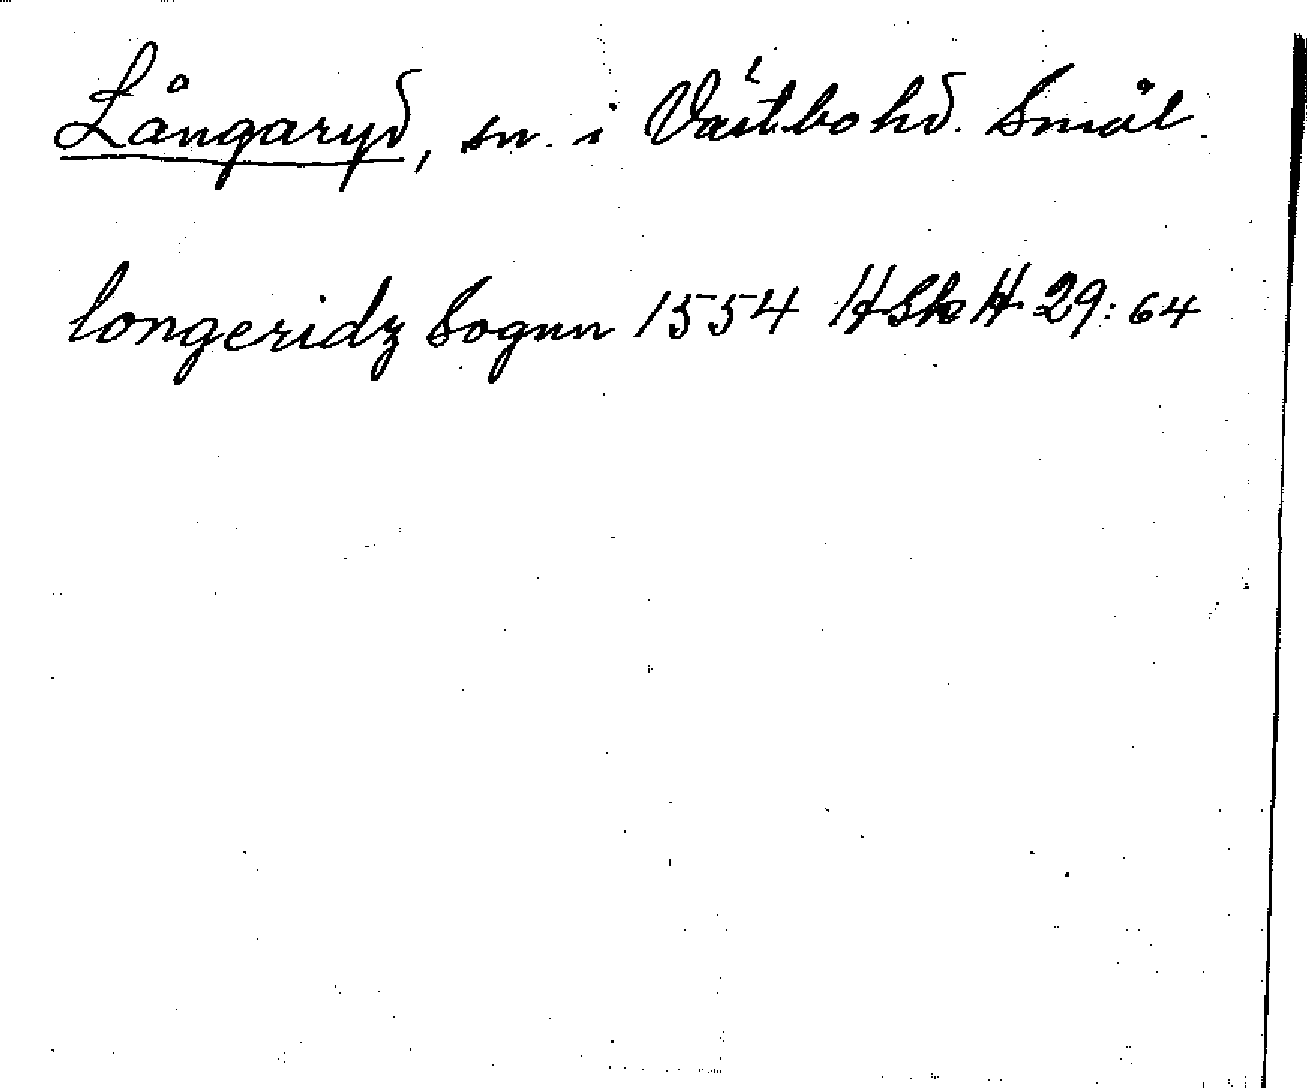 Långaryd, sn. i Västbo hd. Smål.
longeridz Sognn 1554 HSkH 29:64